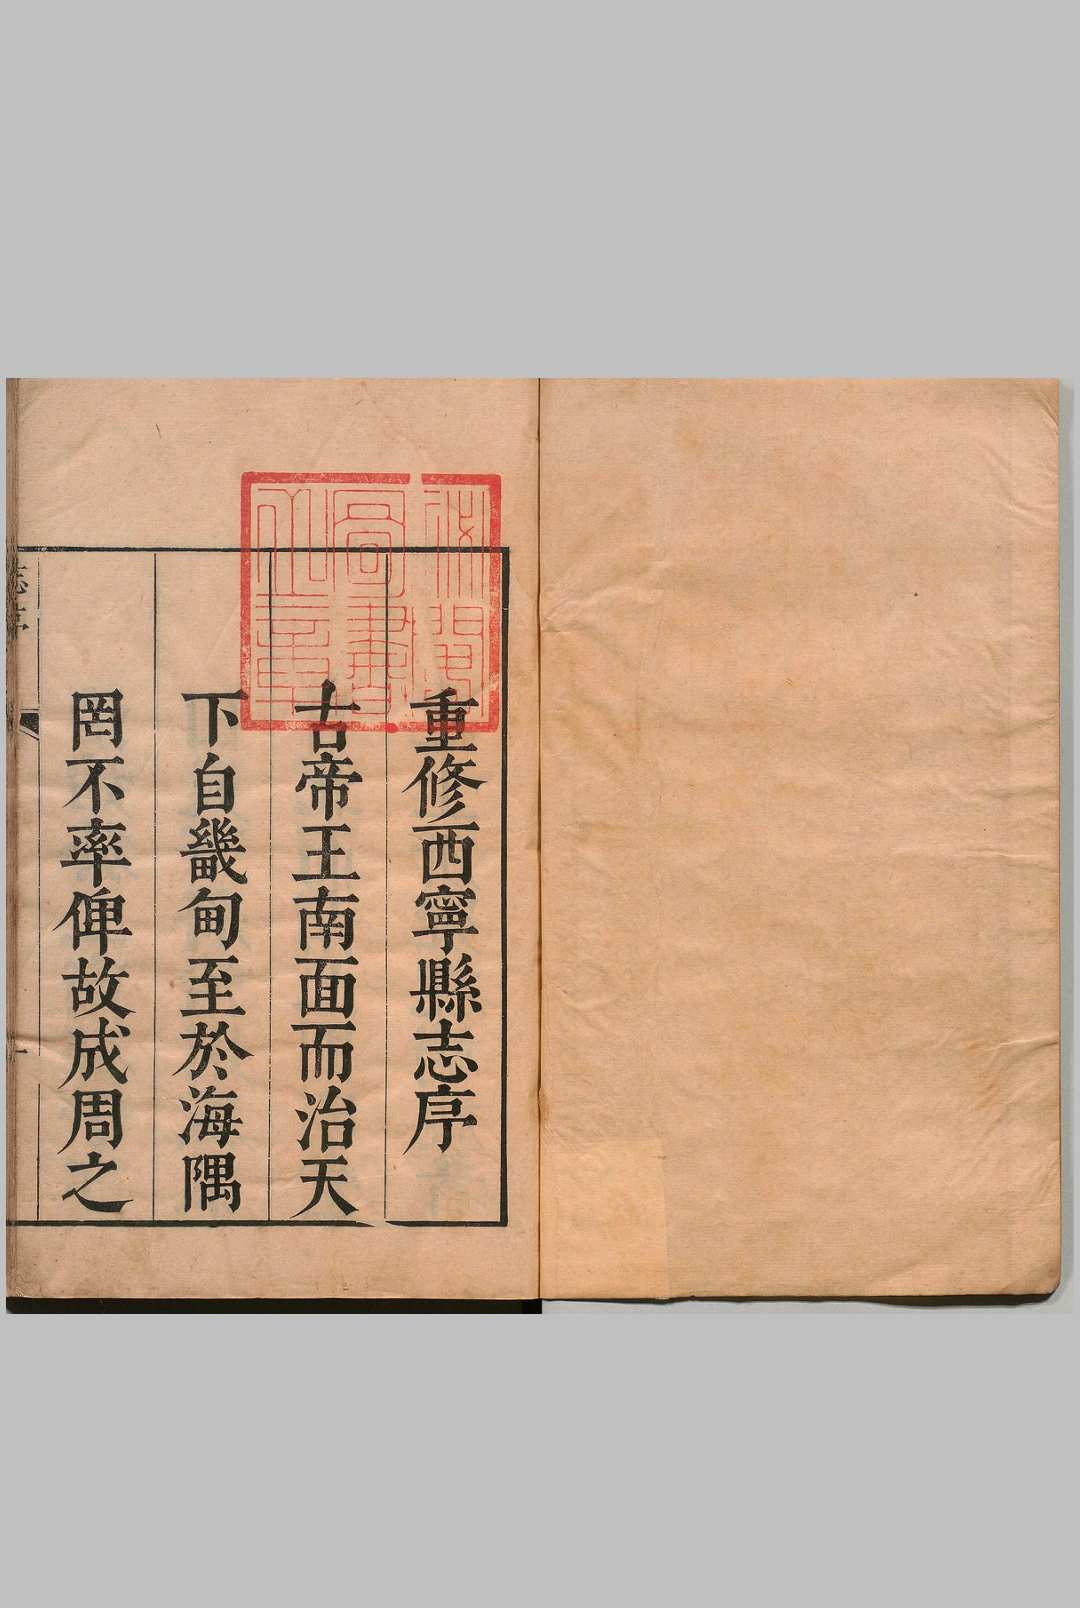 重修西寧縣志序
古帝王南面而治天
下自畿甸至於海隅
罔不率俾故成周之
志序